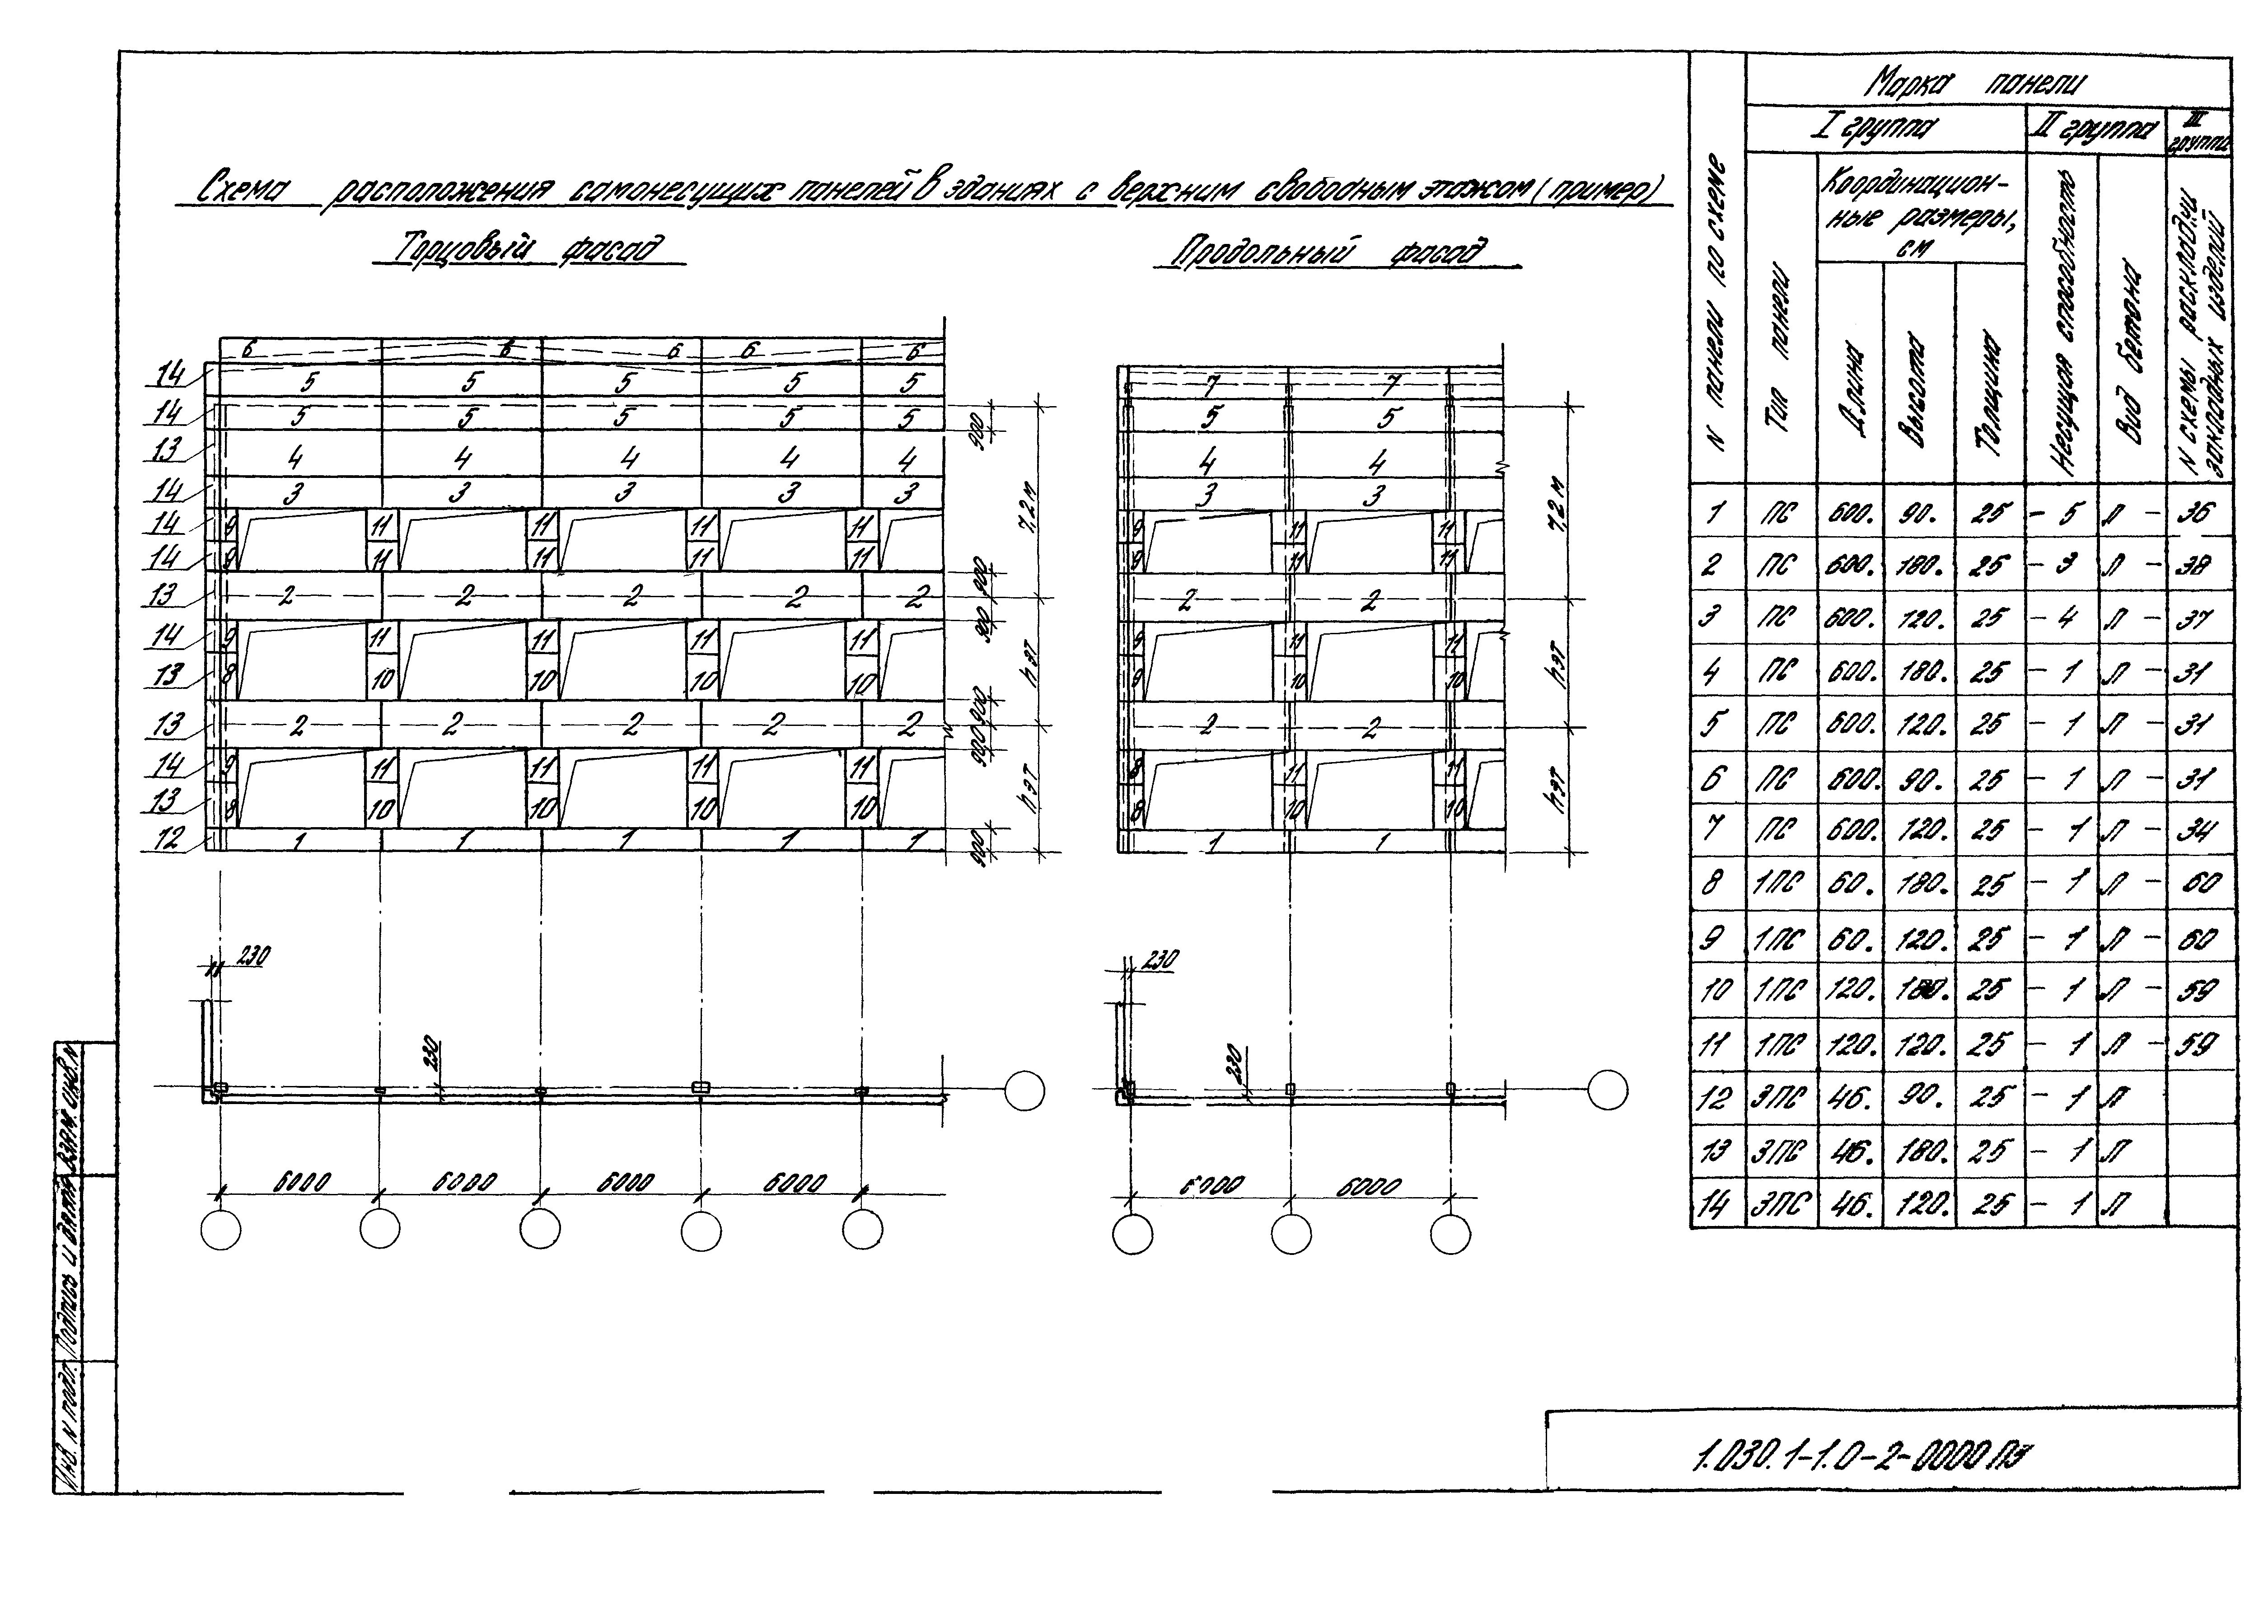 Схема расположения самонесущих панелей в зданиях с верхним свободным этажом (пример)
Торцовый фасад
Продольный фасад
6 6 6 6 6
14 5 5 5 5 5
14 5 5 5 5 5
13 4 4 4 4 4
14 3 3 3 3 3
14 9 11 11 11 11
14 9 11 11 11 11
13 2 2 2 2 2
14 9 11 11 11 11
13 8 10 10 10 10
13 2 2 2 2 2
14 9 11 11 11 11
13 8 10 10 10 10
12 1 1 1 1 1
900
900
900
900
900
900
7,2 м
h эт
h эт
7 7
5 5
4 4
3 3
9 11 11
9 11 11
2 2
9 11 11
9 10 10
2 2
8 11 11
8 10 10
1 1
7,2 м
h эт
h эт
230
230
6000 6000 6000 6000
230
230
6000 6000
N панели по схеме
Марка панели
I группа
II группа
III группа
Тип панели
Координацион-
ные размеры,
см
Длина
Высота
Толщина
Несущая способность
Вид бетона
N схемы раскладки
закладных изделий
1 ПС 600. 90. 25 - 5 Л - 36
2 ПС 600. 180. 25 - 3 Л - 38
3 ПС 600. 120. 25 - 4 Л - 37
4 ПС 600. 180. 25 - 1 Л - 31
5 ПС 600. 120. 25 - 1 Л - 31
6 ПС 600. 90. 25 - 1 Л - 31
7 ПС 600. 120. 25 - 1 Л - 34
8 1ПС 60. 180. 25 - 1 Л - 60
9 1ПС 60. 120. 25 - 1 Л - 60
10 1ПС 120. 180. 25 - 1 Л - 59
11 1ПС 120. 120. 25 - 1 Л - 59
12 3ПС 46. 90. 25 - 1 Л
13 3ПС 46. 180. 25 - 1 Л
14 3ПС 46. 120. 25 - 1 Л
Инв. N подл.
Подпись и дата
Взам. инв. N
1.030.1-1.0-2-0000ПЗ